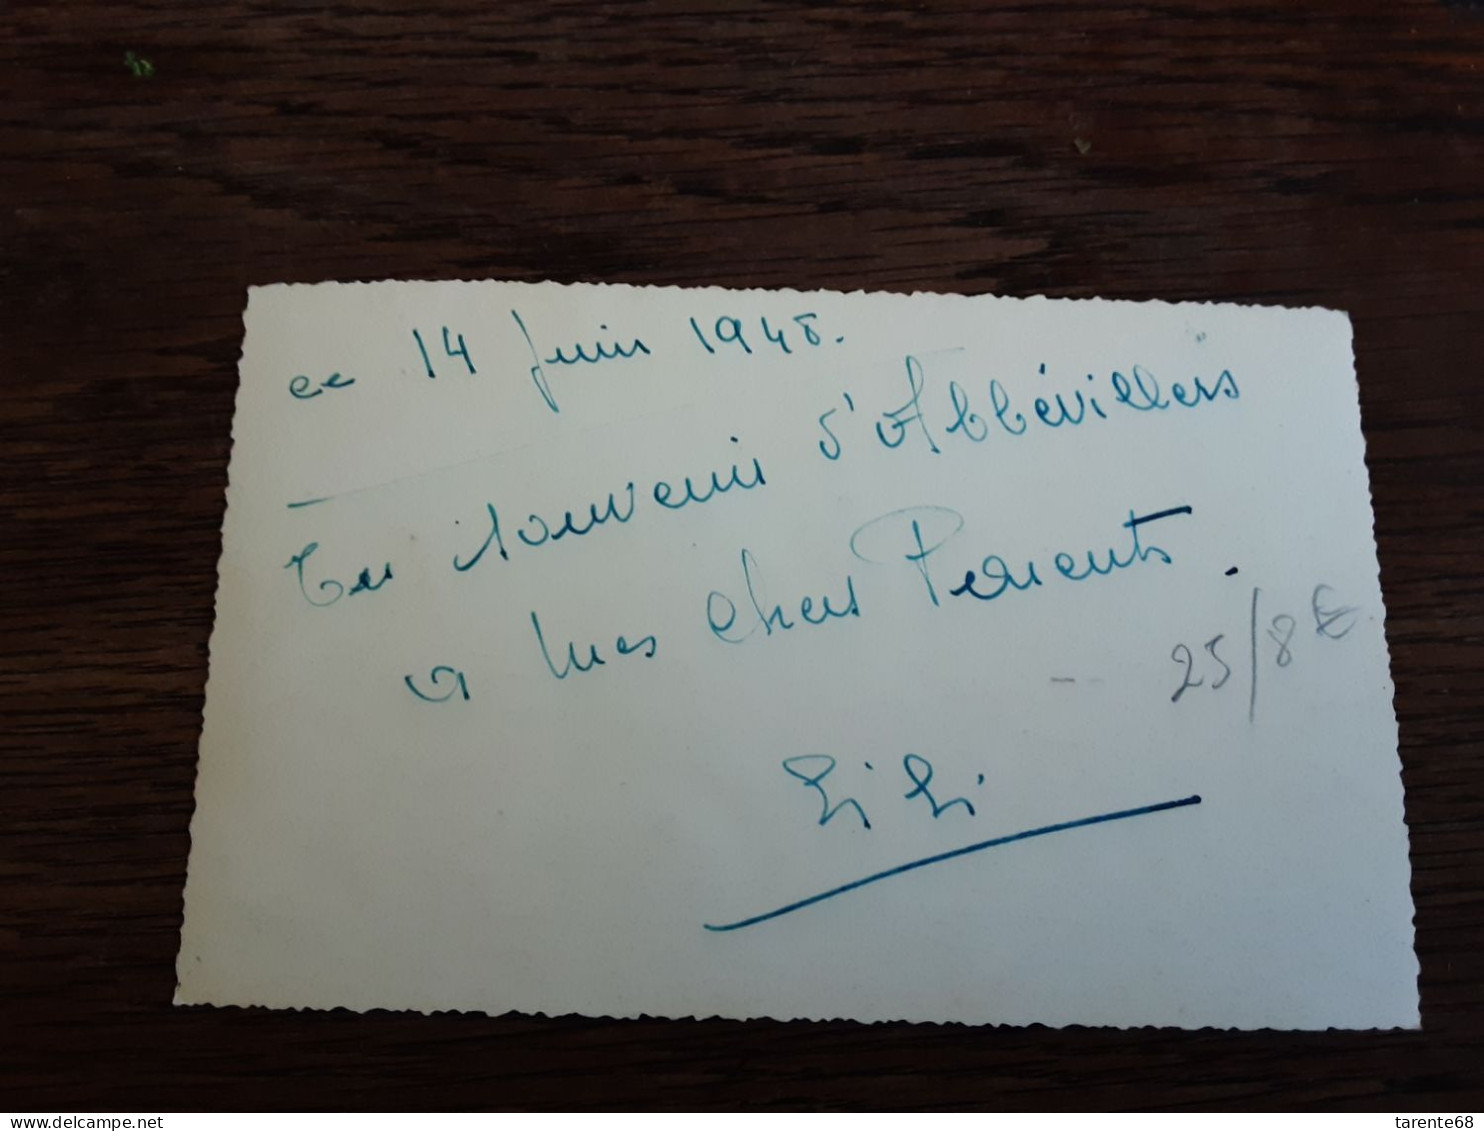 ce 14 Juin 1948.
En souvenir d'Abbévillers
a mes chers Parents.
25/8€
LiLi
www.delcampe.net
tarente68